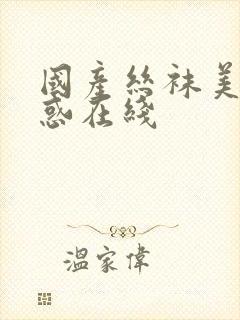 國產絲袜美
惑在綫
溫家偉